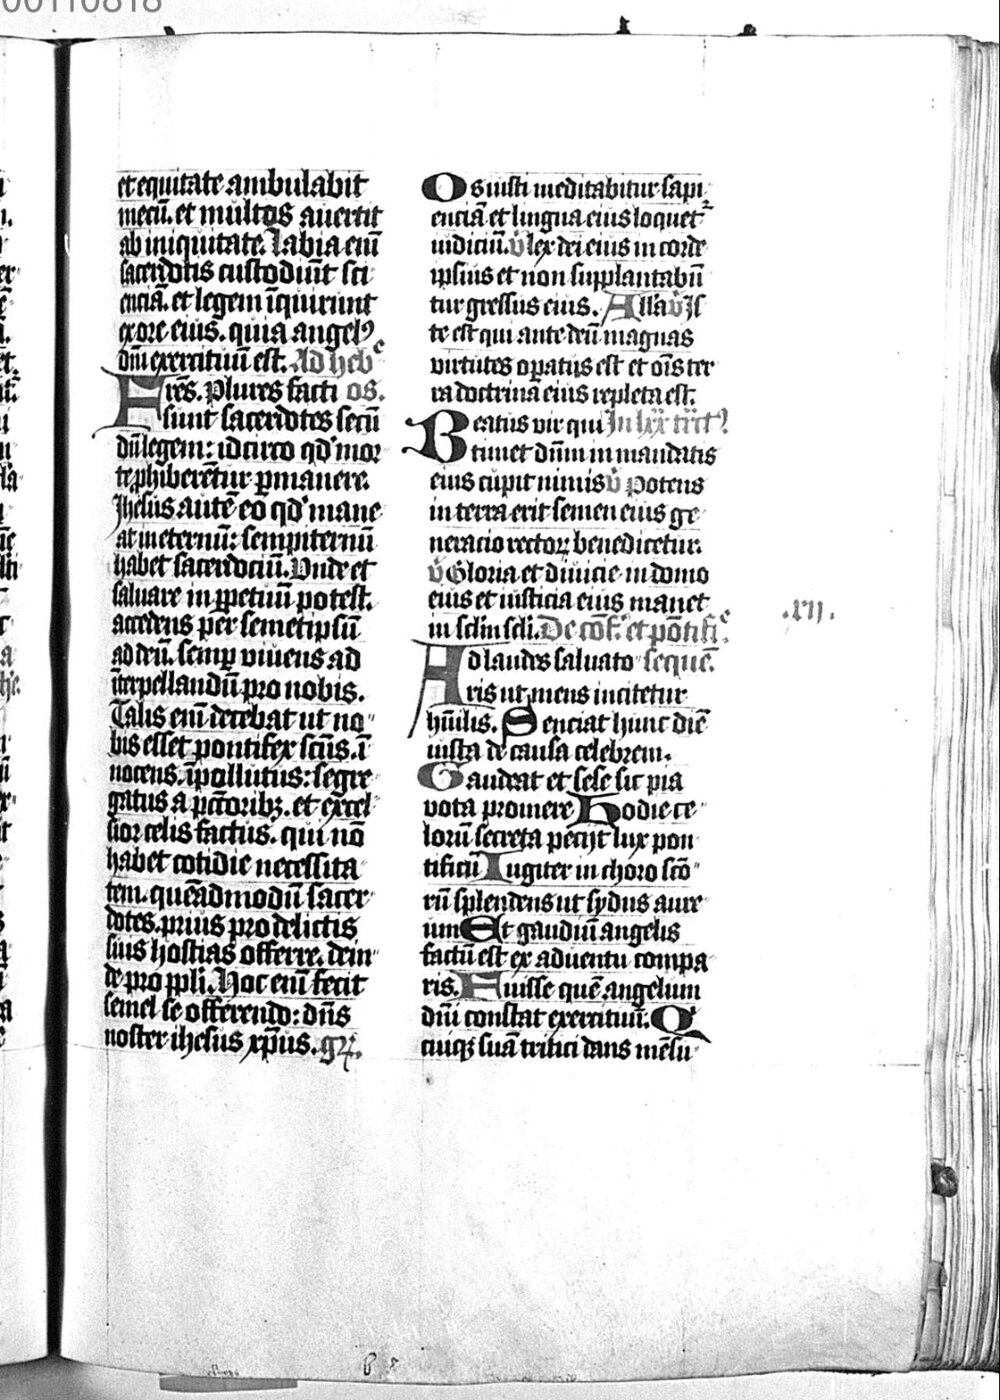 00110818
et equitate ambulabit
mecū. et multos auertit
ab iniquitate. Labia enī
sacerdotis custodiūt sci
enciā. et legem īquirunt
ex ore eius. quia angelꝰ
dn̄i exercituū est. Ad heb
Fr̄es. Plures facti os.
sunt sacerdotes secū
dū legem: idcirco qd' mor
te ꝓhiberētur ꝑmanere.
Jhesus autē eo qd' mane
at in eternū: sempiternū
habet sacerdociū. Vnde et
saluare in ꝑpetuū potest.
accedens per semetipsū
ad deū. semꝑ viuens ad
īterpellandū pro nobis.
Talis enī decebat ut no
bis esset pontifex scūs. ī
nocens. īpollutus: segre
gatus a pctōribꝫ. et excel
sior celis factus. qui nō
habet cotidie necessita
tem. quēadmodū sacer
dotes. prius pro delictis
suis hostias offerre. dein
de pro ppli. Hoc enī fecit
semel se offerendo: dn̄s
noster ihesus xp̄us. gr̄.
Os iusti meditabitur sapi
enciā et lingua eius loquet
iudiciū. v̄ lex dei eius in corde
ipsius et non supplantabū
tur gressus eius. Alla v̄ Js
te est qui ante deū magnas
virtutes oꝑatus est et ois ter
ra doctrina eius repleta est.
Beatus vir qui In lxx trct
timet dn̄m in mandatis
eius cupit nimis v̄ Potens
in terra erit semen eius ge
neracio rectoꝝ benedicetur.
v̄ Gloria et diuicie in domo
eius et iusticia eius manet
in sclm̄ scli. De cōf. et pōtifi
.xii.
Ad laudes saluato sequē.
ris ut mens incitetur
hūilis. Senciat hunc diē
iusta de causa celebrem.
Gaudeat et sese sic pia
vota promere Hodie ce
lorū secreta peciit lux pon
tificū Iugiter in choro scō
rū splendens ut sydus aure
um Et gaudiū angelis
factū est ex aduentu compa
ris. Fuisse quē angelum
dn̄i constat exercituū. Q
cuiqꝫ suā tritici dans mēsu